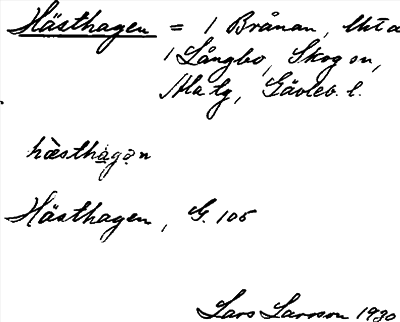 Hästhagen = 1 Brånan,
1 Långbo, Skog on,
Alfta, Gävleb. l.
hàesthagọn
Hästhagen, G. 105
Lars Larsson 1930